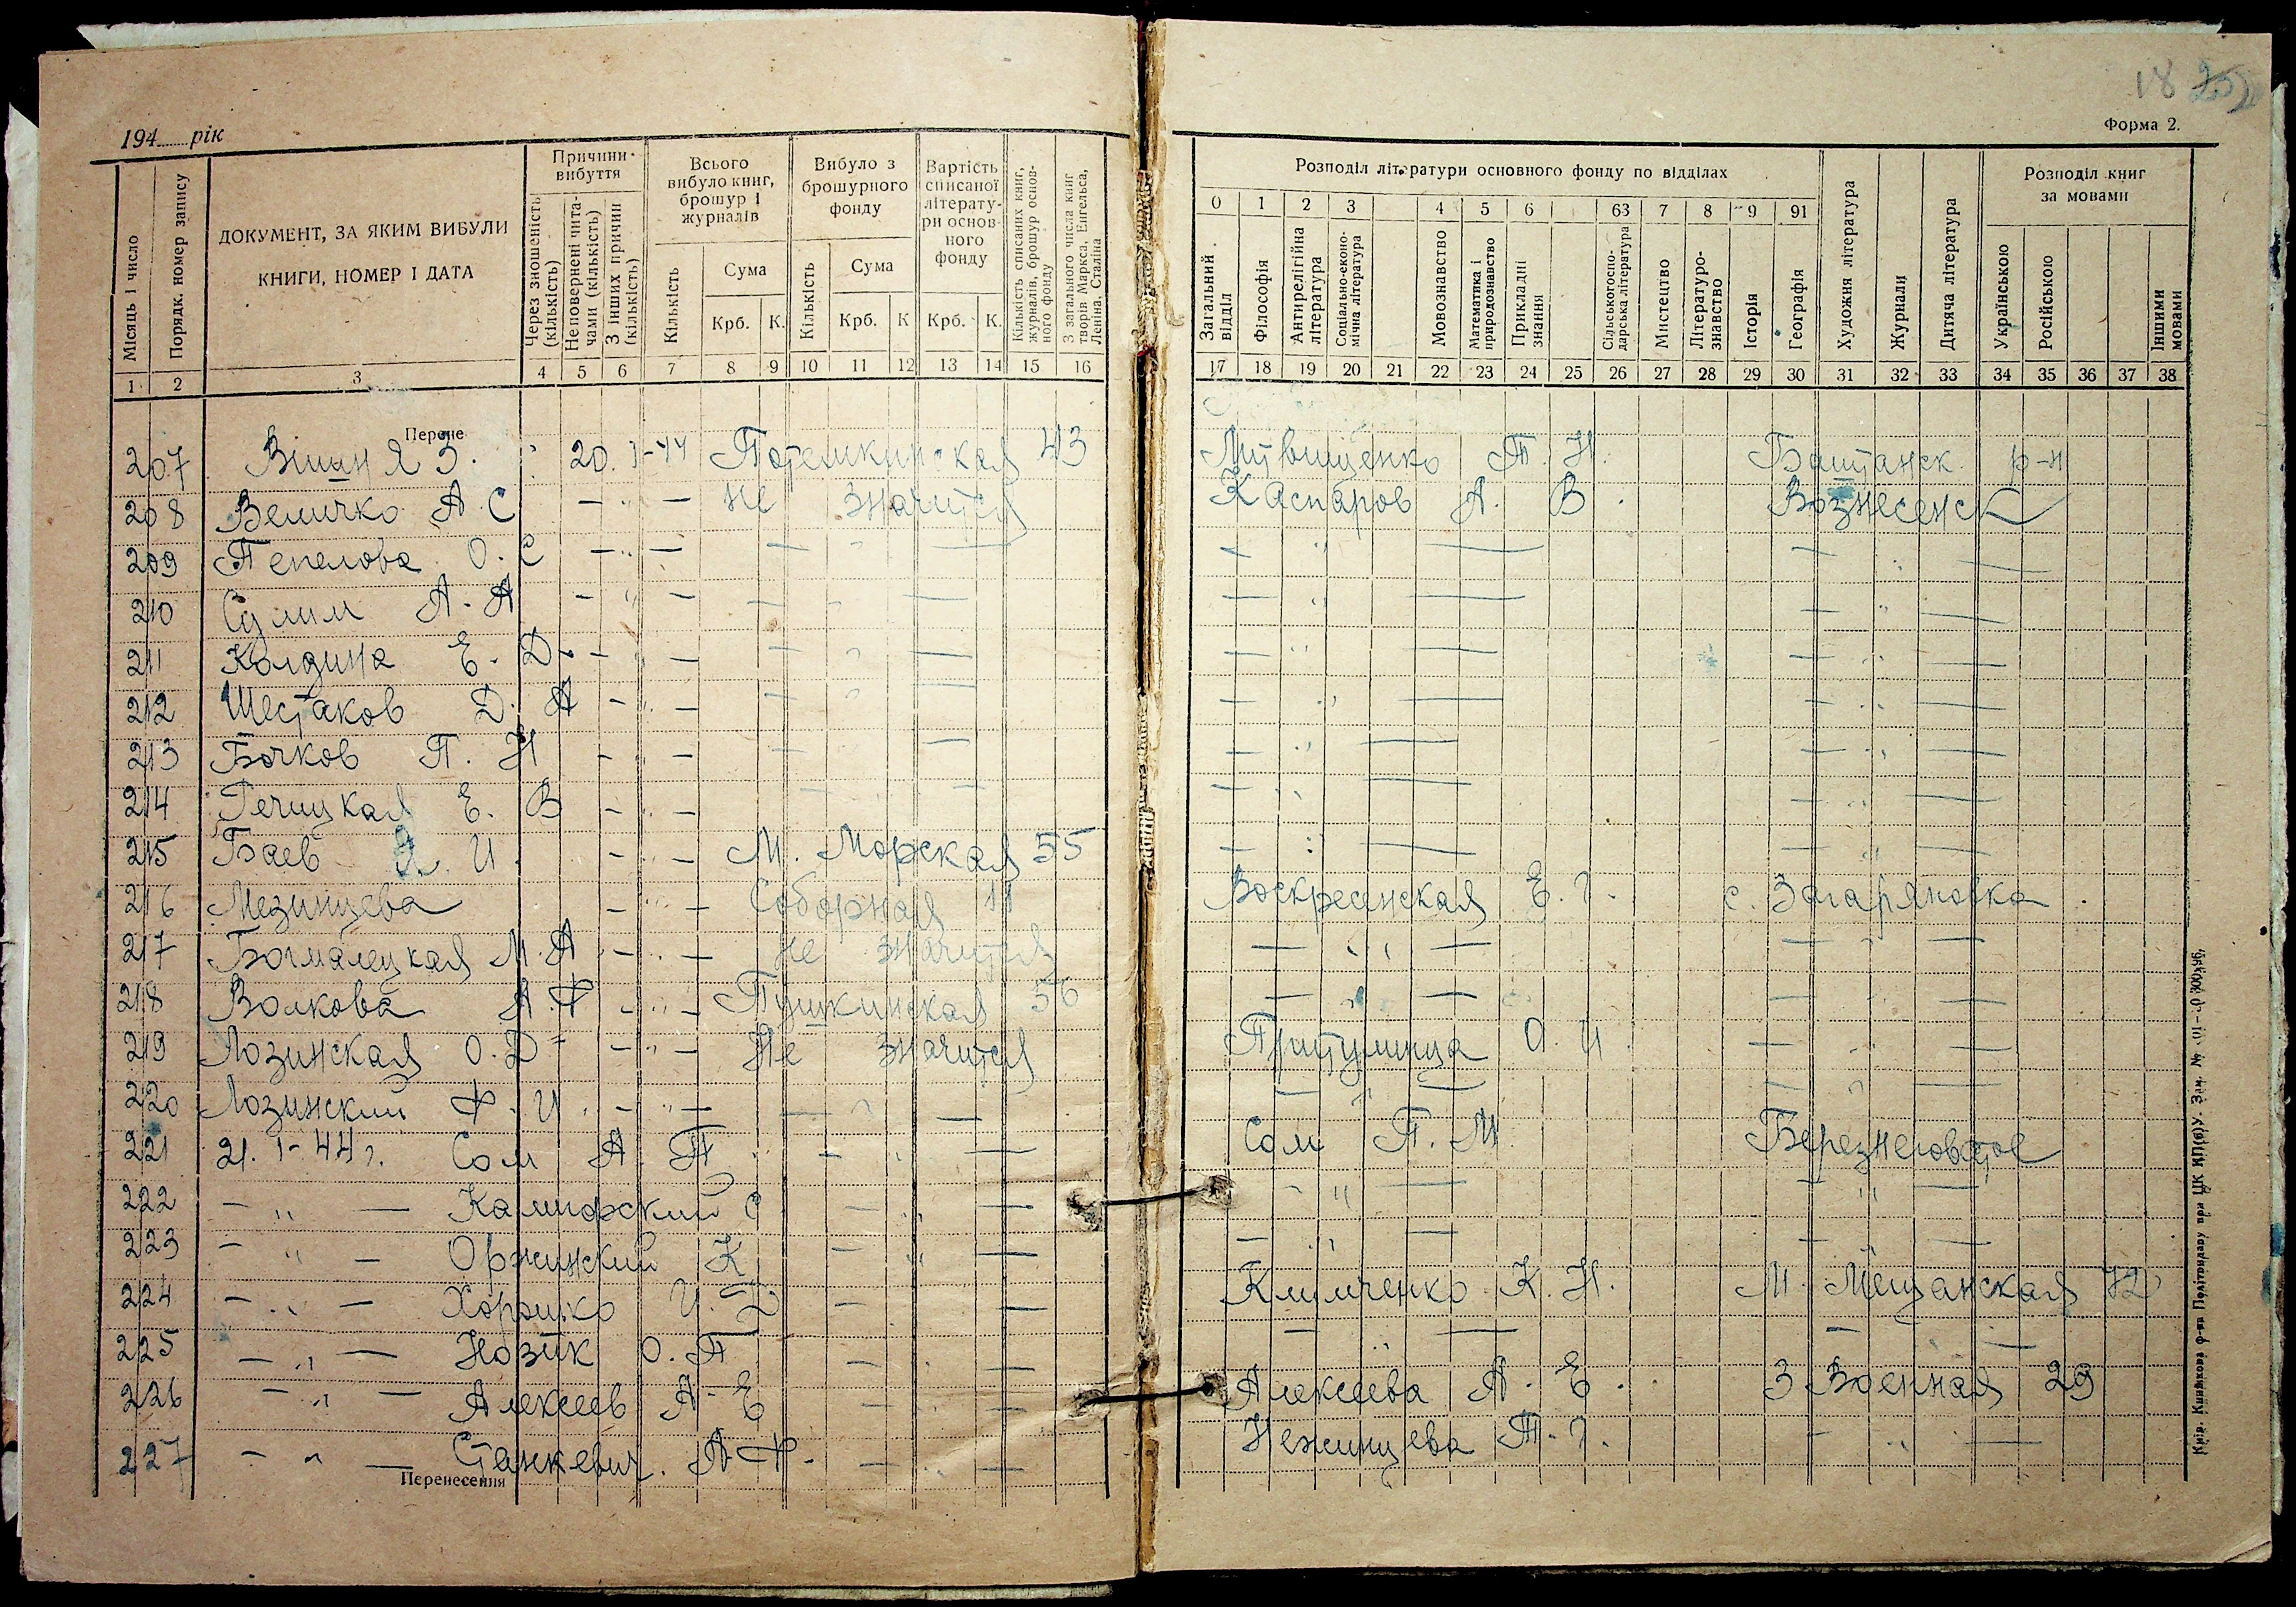 18
194 рік
Форма 2.
Місяць і число
Порядк. номер запису
ДОКУМЕНТ, ЗА ЯКИМ ВИБУЛИ КНИГИ, НОМЕР І ДАТА
Причини вибуття
Через зношеність (кількість)
Неповернені читачами (кількість)
З інших причин (кількість)
Всього вибуло книг, брошур і журналів
Кількість
Сума
Крб. К.
Вибуло з брошурного фонду
Кількість
Сума
Крб. К
Вартість списаної літератури основного фонду
Крб. К.
Кількість списаних книг, журналів, брошур основного фонду
З загального числа книг творів Маркса, Енгельса, Леніна, Сталіна
Розподіл літератури основного фонду по відділах
0 1 2 3 4 5 6 63 7 8 9 91
Загальний відділ
Філософія
Антирелігійна література
Соціально-економічна література
Мовознавство
Математика і природознавство
Прикладні знання
Сільськогосподарська література
Мистецтво
Літературознавство
Історія
Географія
Художня література
Журнали
Дитяча література
Розподіл книг за мовами
Українською
Російською
Іншими мовами
1 2 3 4 5 6 7 8 9 10 11 12 13 14 15 16
17 18 19 20 21 22 23 24 25 26 27 28 29 30 31 32 33 34 35 36 37 38
Перене
207 З. 20. I-44 Потемкинская 43 Т. Н. Баштанск. р-н
208 Величко А. С — " — не значится Каспаров А. В. Вознесенск
209 Пепелова О. С — " — — " — — " — — " —
210 Сулим А. А — " — — " — — " — — " —
211 Колдина Е. Д. — " — — " — — " — — " —
212 Шестаков Д. А — " — — " — — " — — " —
213 Бочков П. Н — " — — " — — " — — " —
214 Е. В — " — — " — — " — — " —
215 Баев И. — " — М. Морская 55 — " — — " —
216 Мезинцева — " — Соборная 11 Воскресенская Е. Г. с. Загаряновка
217 М. А — " — не значится — " — — " —
218 Волкова А. Ф — " — Пушкинская 56 — " — — " —
219 Лозинская О. Д — " — Не значится Притулица О. И. — " —
220 Лозинский Ф. И. — " — — " — — " — — " —
221 21. I-44 г. Сом А. П — " — Сом П. М Березнеговатое
222 — " — Калиорский С — " — — " — — " —
223 — " — Оржинский К — " — — " — — " —
224 — " — Хорошко И. — — Климченко К. Н. М. Мещанская 72
225 — " — Новик О. П — " — — " — — " —
226 — " — Алексеев А. Е — " — Алексеева А. Е. 3 Военная 29
227 — " — Станкевич. А. Ф. — " — Нежинцева Т. Г. — " —
Перенесення